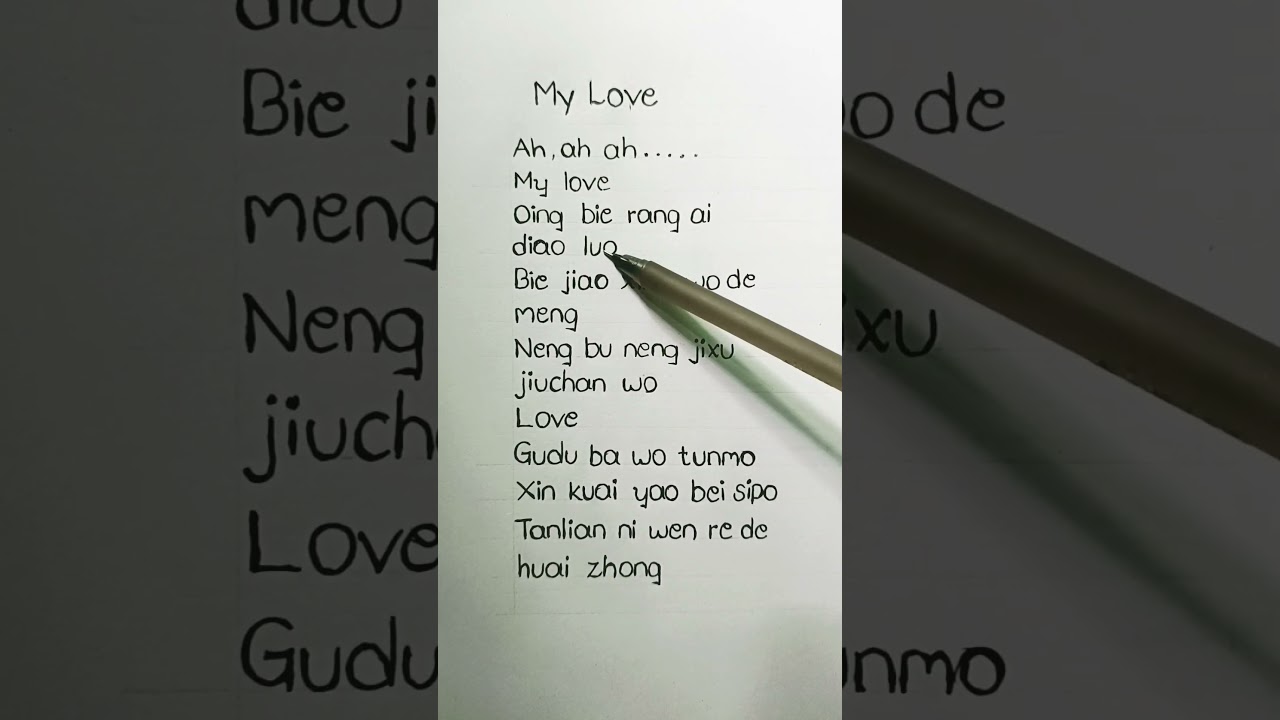 My Love
Ah, ah ah.....
My love
Oing bie rang ai
diao luo
Bie jiao de
meng
Neng bu neng jixu
jiuchan wo
Love
Gudu ba wo tunmo
Xin kuai yao bei sipo
Tanlian ni wen re de
huai zhong